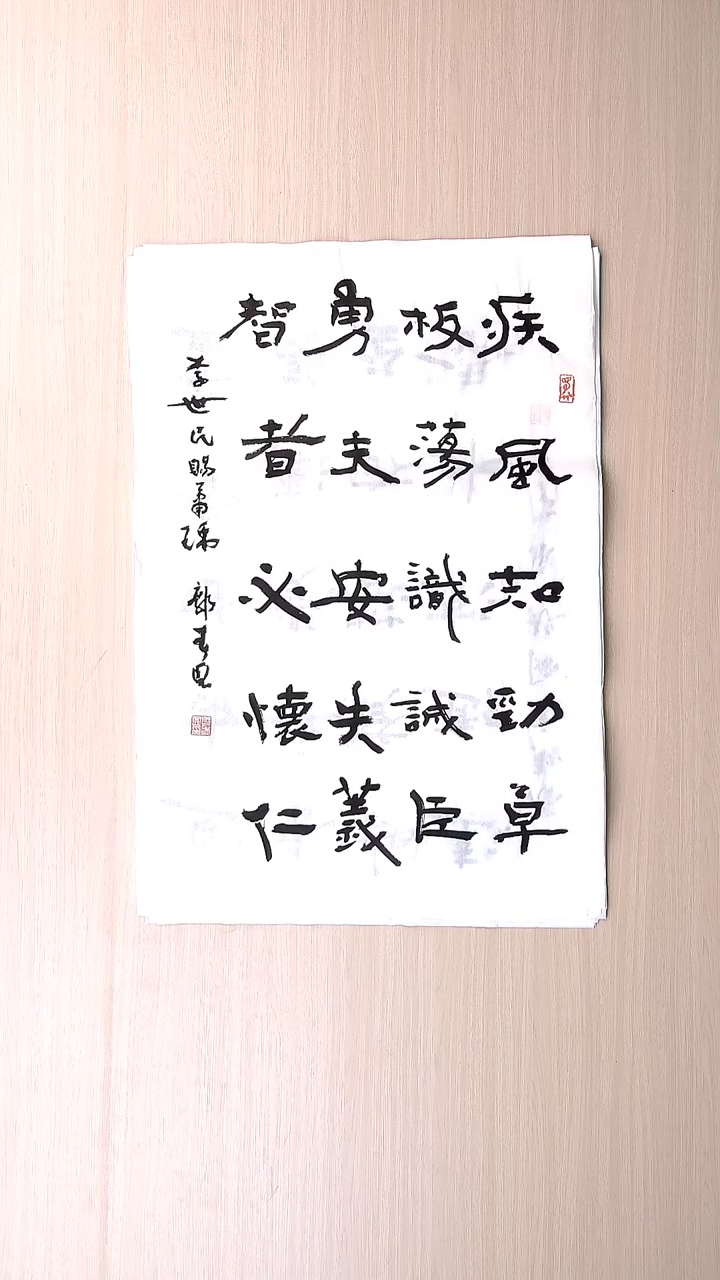 疾風知勁草
板蕩識誠臣
勇夫安失義
智者必懷仁
李世民賜蕭瑀